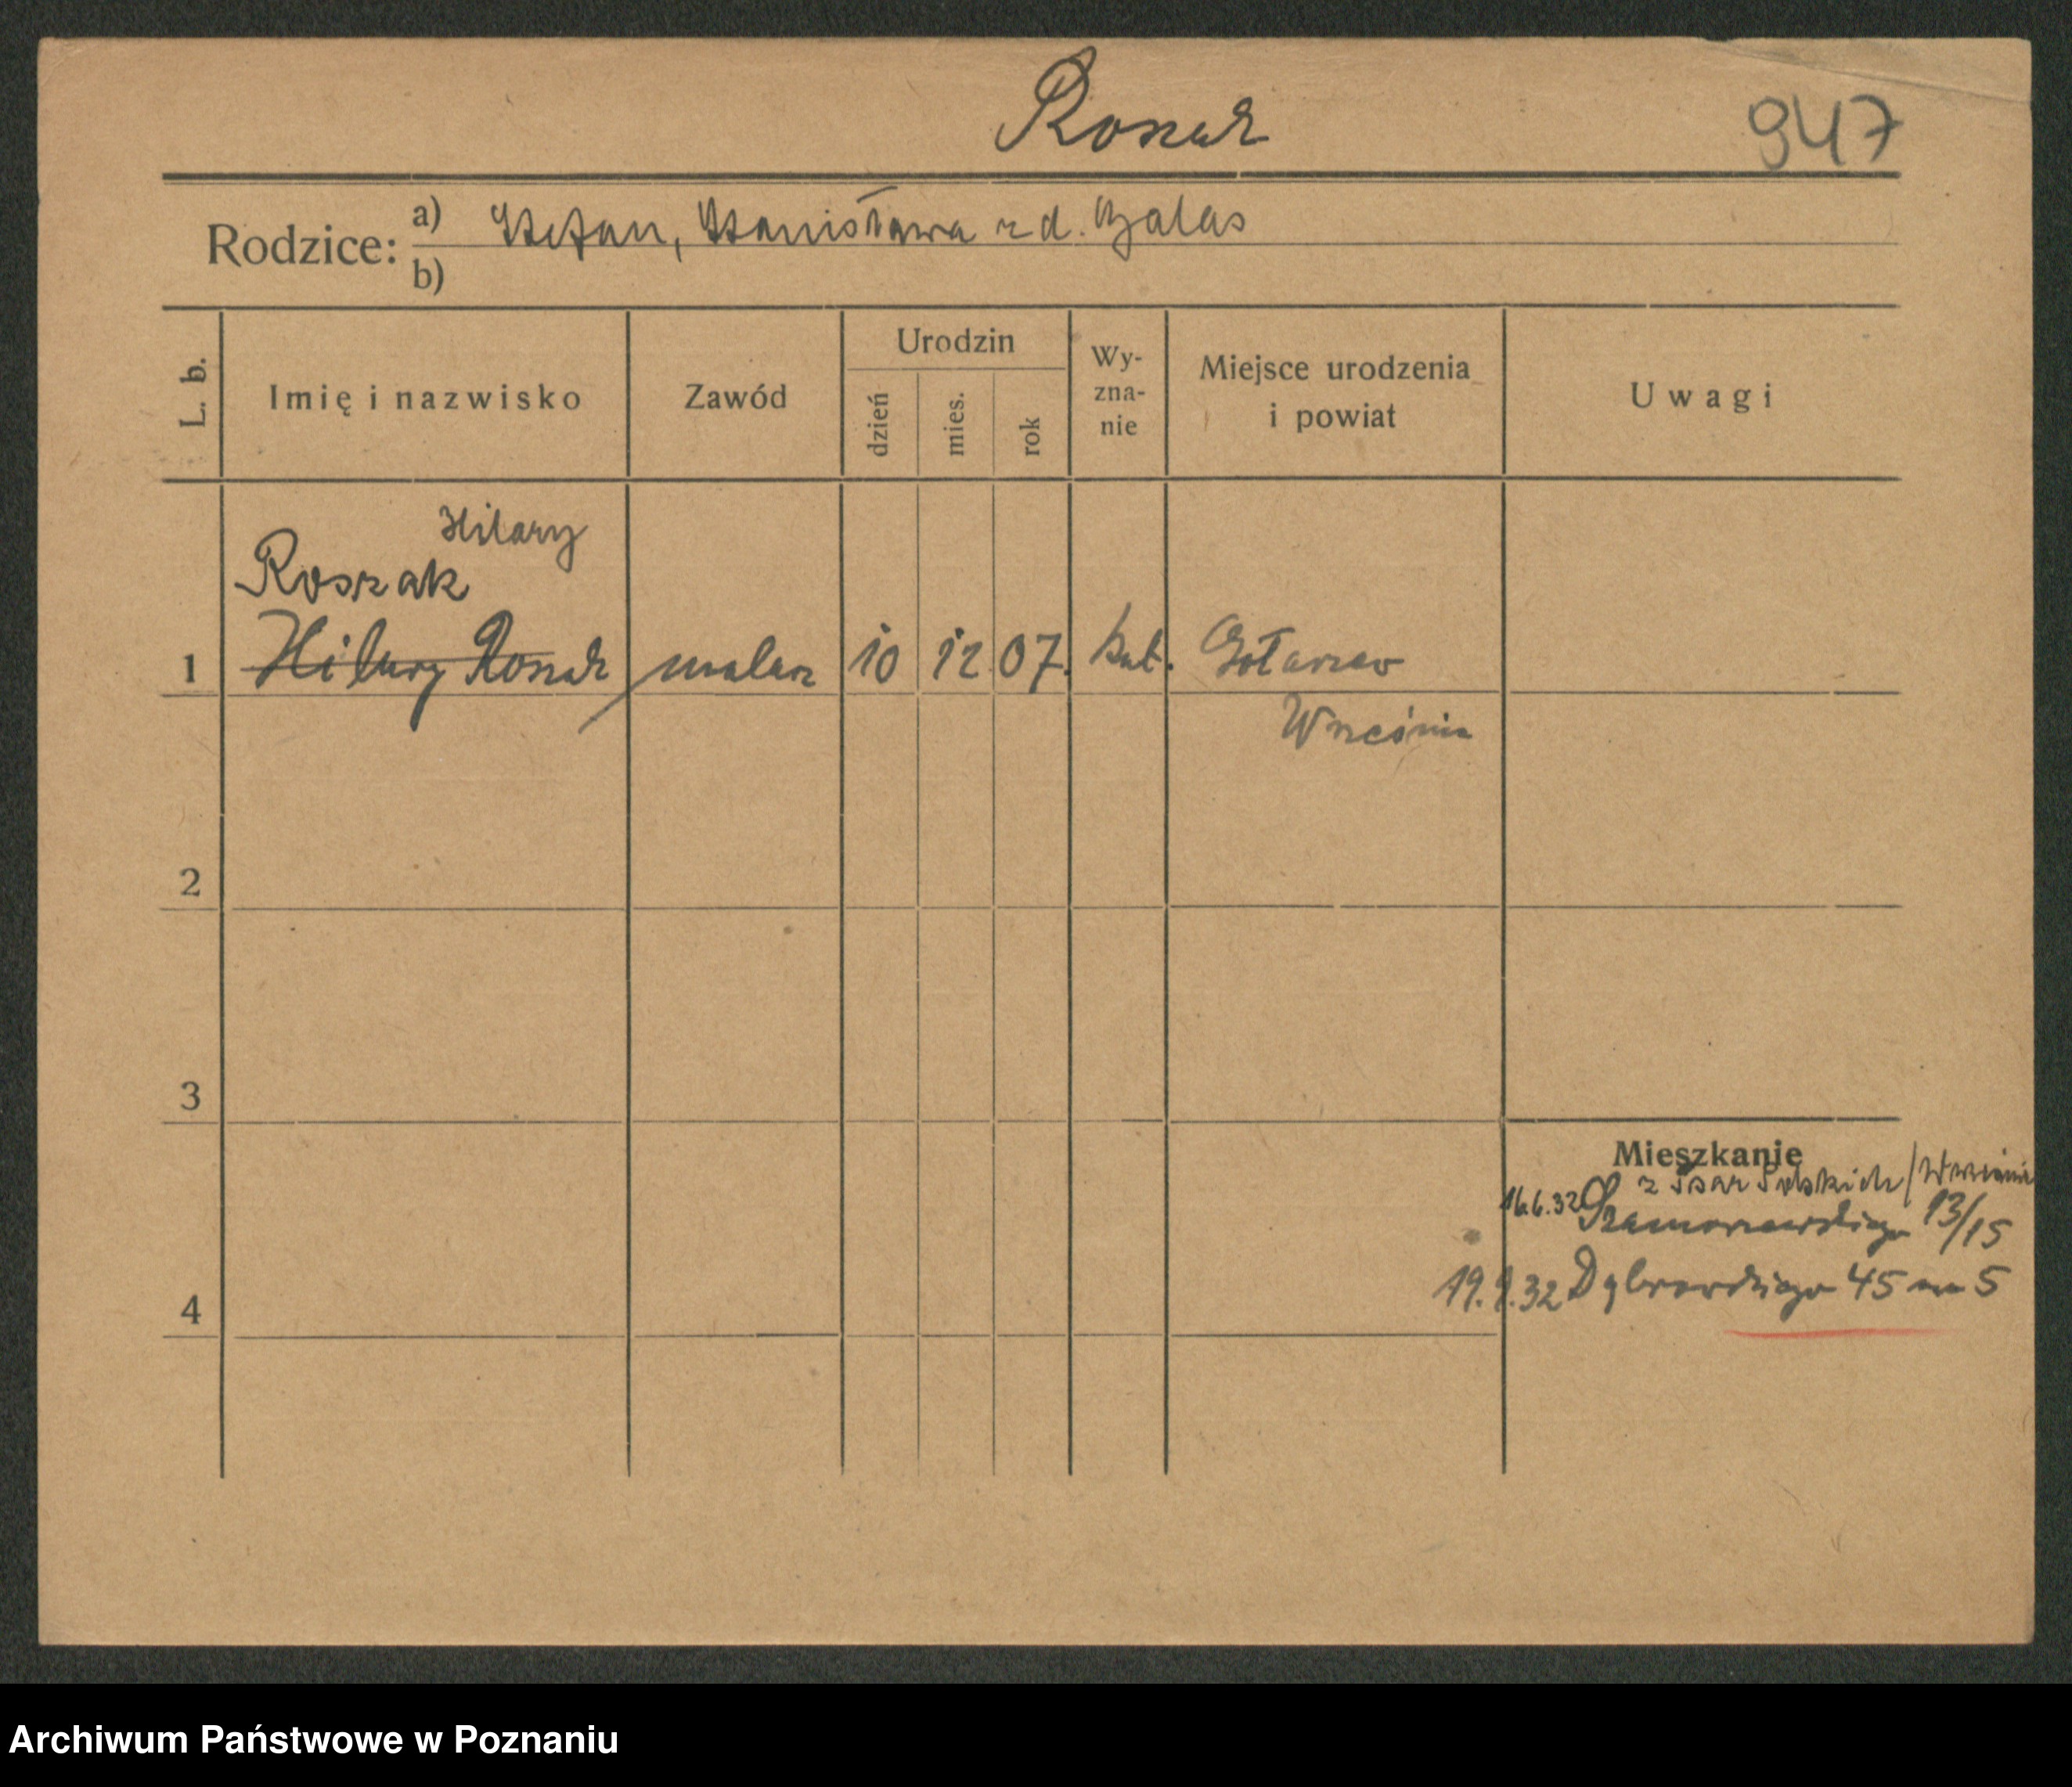 Roszak
947
Rodzice: a) Stefan, Stanisława z d. Galas
b)
L. b.
Imię i nazwisko
Zawód
Urodzin
dzień
mies.
rok
Wy-
zna-
nie
Miejsce urodzenia
i powiat
Uwagi
Hilary
Roszak
1 Hilary Roszak malarz 10 12 07. kat.
Września
2
3
4
Mieszkanie
16.6.32 Szamarzewskiego 13/15
19.9.32 Dąbrowskiego 45 m 5
Archiwum Państwowe w Poznaniu